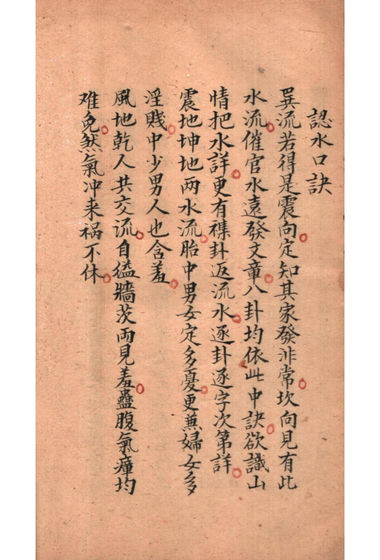 認水口訣
巽流若得是震向定知其家發非常坎向見有此
水流催官水遠發文章八卦均依此中訣欲識山
情把水詳更有襍卦返流水逐卦逐字次第詳
震地坤地兩水流胎中男女定多憂更蕪婦女多
淫賤中少男人也含羞
風地乾人共交流自縊牆茨両見羞蠱腹氣瘴均
难免煞氣冲来禍不休